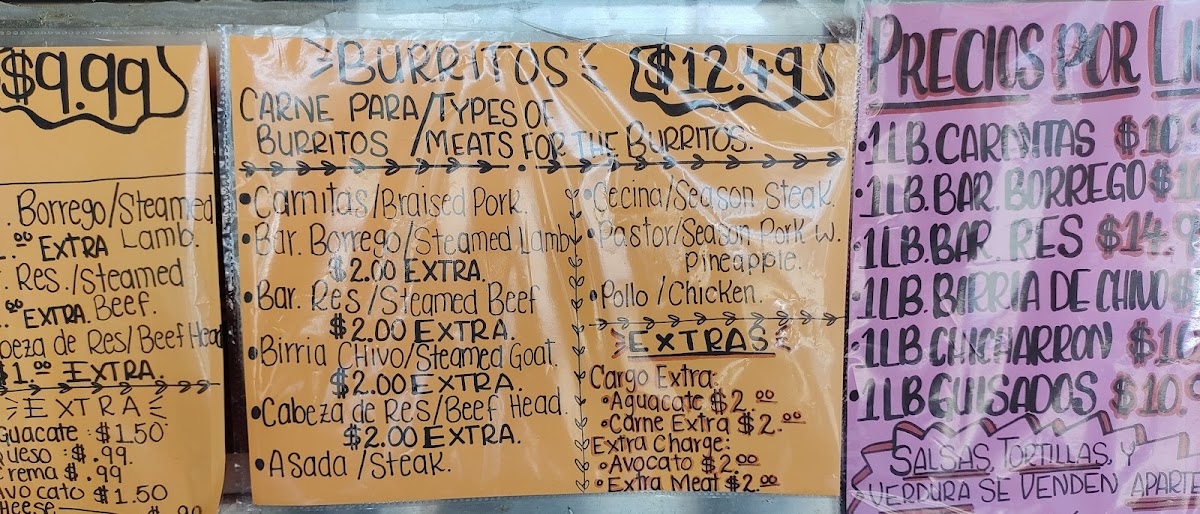 $9.99
Borrego/Steamed
.00 EXTRA Lamb.
. Res./Steamed
.00 EXTRA. Beef.
de Res/Beef Head
$1.00 EXTRA.
EXTRA
: $1.50
: $.99.
$.99
$1.50
BURRITOS $12.49
CARNE PARA/TYPES OF
BURRITOS /MEATS FOR THE BURRITOS.
•Carnitas/Braised Pork.
•Bar. Borrego/Steamed Lamb
$2.00 EXTRA.
•Bar. Res/Steamed Beef
$2.00 EXTRA.
•Birria Chivo/Steamed Goat.
$2.00 EXTRA.
•Cabeza de Res/Beef Head.
$2.00 EXTRA.
•Asada/Steak.
•Cecina/Season Steak.
•Pastor/Season Pork W.
Pineapple.
•Pollo/Chicken.
EXTRAS
Cargo Extra.
•Aguacate $2.00
•Carne Extra $2.00
Extra Charge:
•Avocato $2.00
•Extra Meat $2.00
PRECIOS POR
•1LB. CARNITAS $10
•1LB. BAR. BORREGO $1
•1LB. BAR. RES $14.9
•1LB. BIRRIA DE CHIVO $
•1LB CHICHARRON $10
•1LB GUISADOS $10.9
SALSAS, TORTILLAS, Y
VERDURA SE VENDEN APARTE